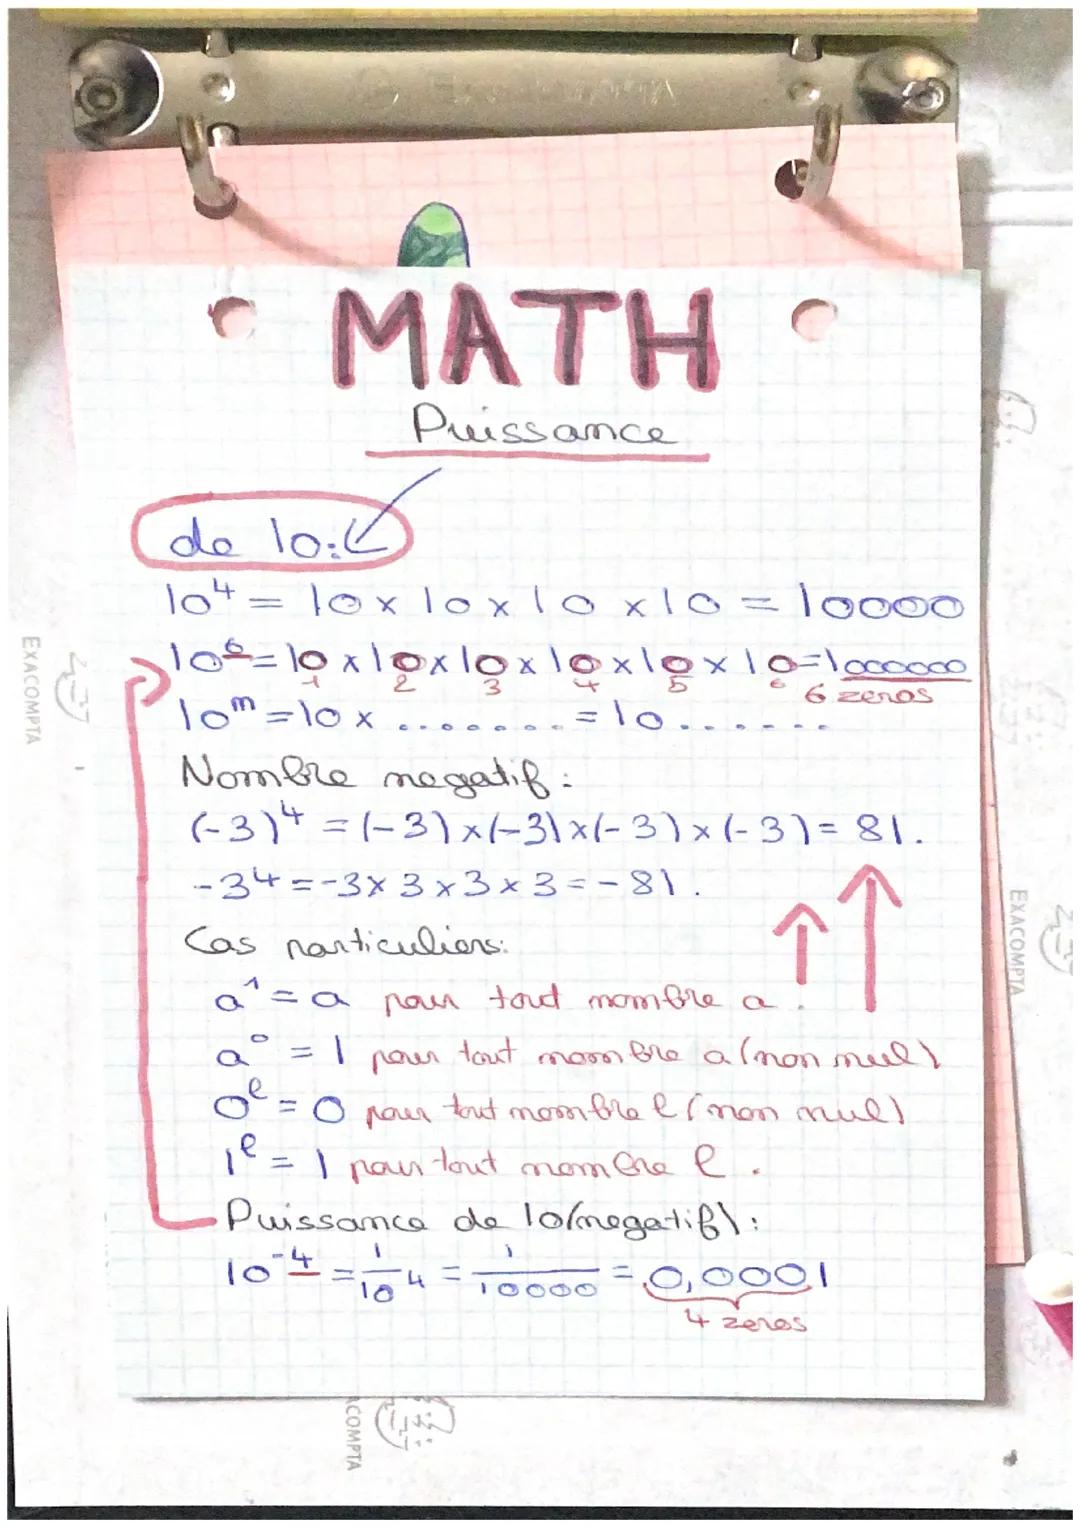 MATH
Puissance
de 10:
10⁴ = 10 x 10 x 10 x 10 = 10000
10⁶ = 10 x 10 x 10 x 10 x 10 x 10 = 1000000
1 2 3 4 5 6 6 zeros
10ⁿ = 10 x ........ = 10.......
Nombre negatif :
(-3)⁴ = (-3) x (-3) x (-3) x (-3) = 81.
-3⁴ = -3 x 3 x 3 x 3 = -81.
Cas particuliers:
a¹ = a pour tout nombre a.
a⁰ = 1 pour tout nombre a (non nul)
0ᵉ = 0 pour tout nombre e (non nul)
1ᵉ = 1 pour tout nombre e.
Puissance de 10 (negatif) :
10⁻⁴ = 1/10⁴ = 1/10000 = 0,0001
4 zeros
EXACOMPTA
EXACOMPTA
ACOMPTA